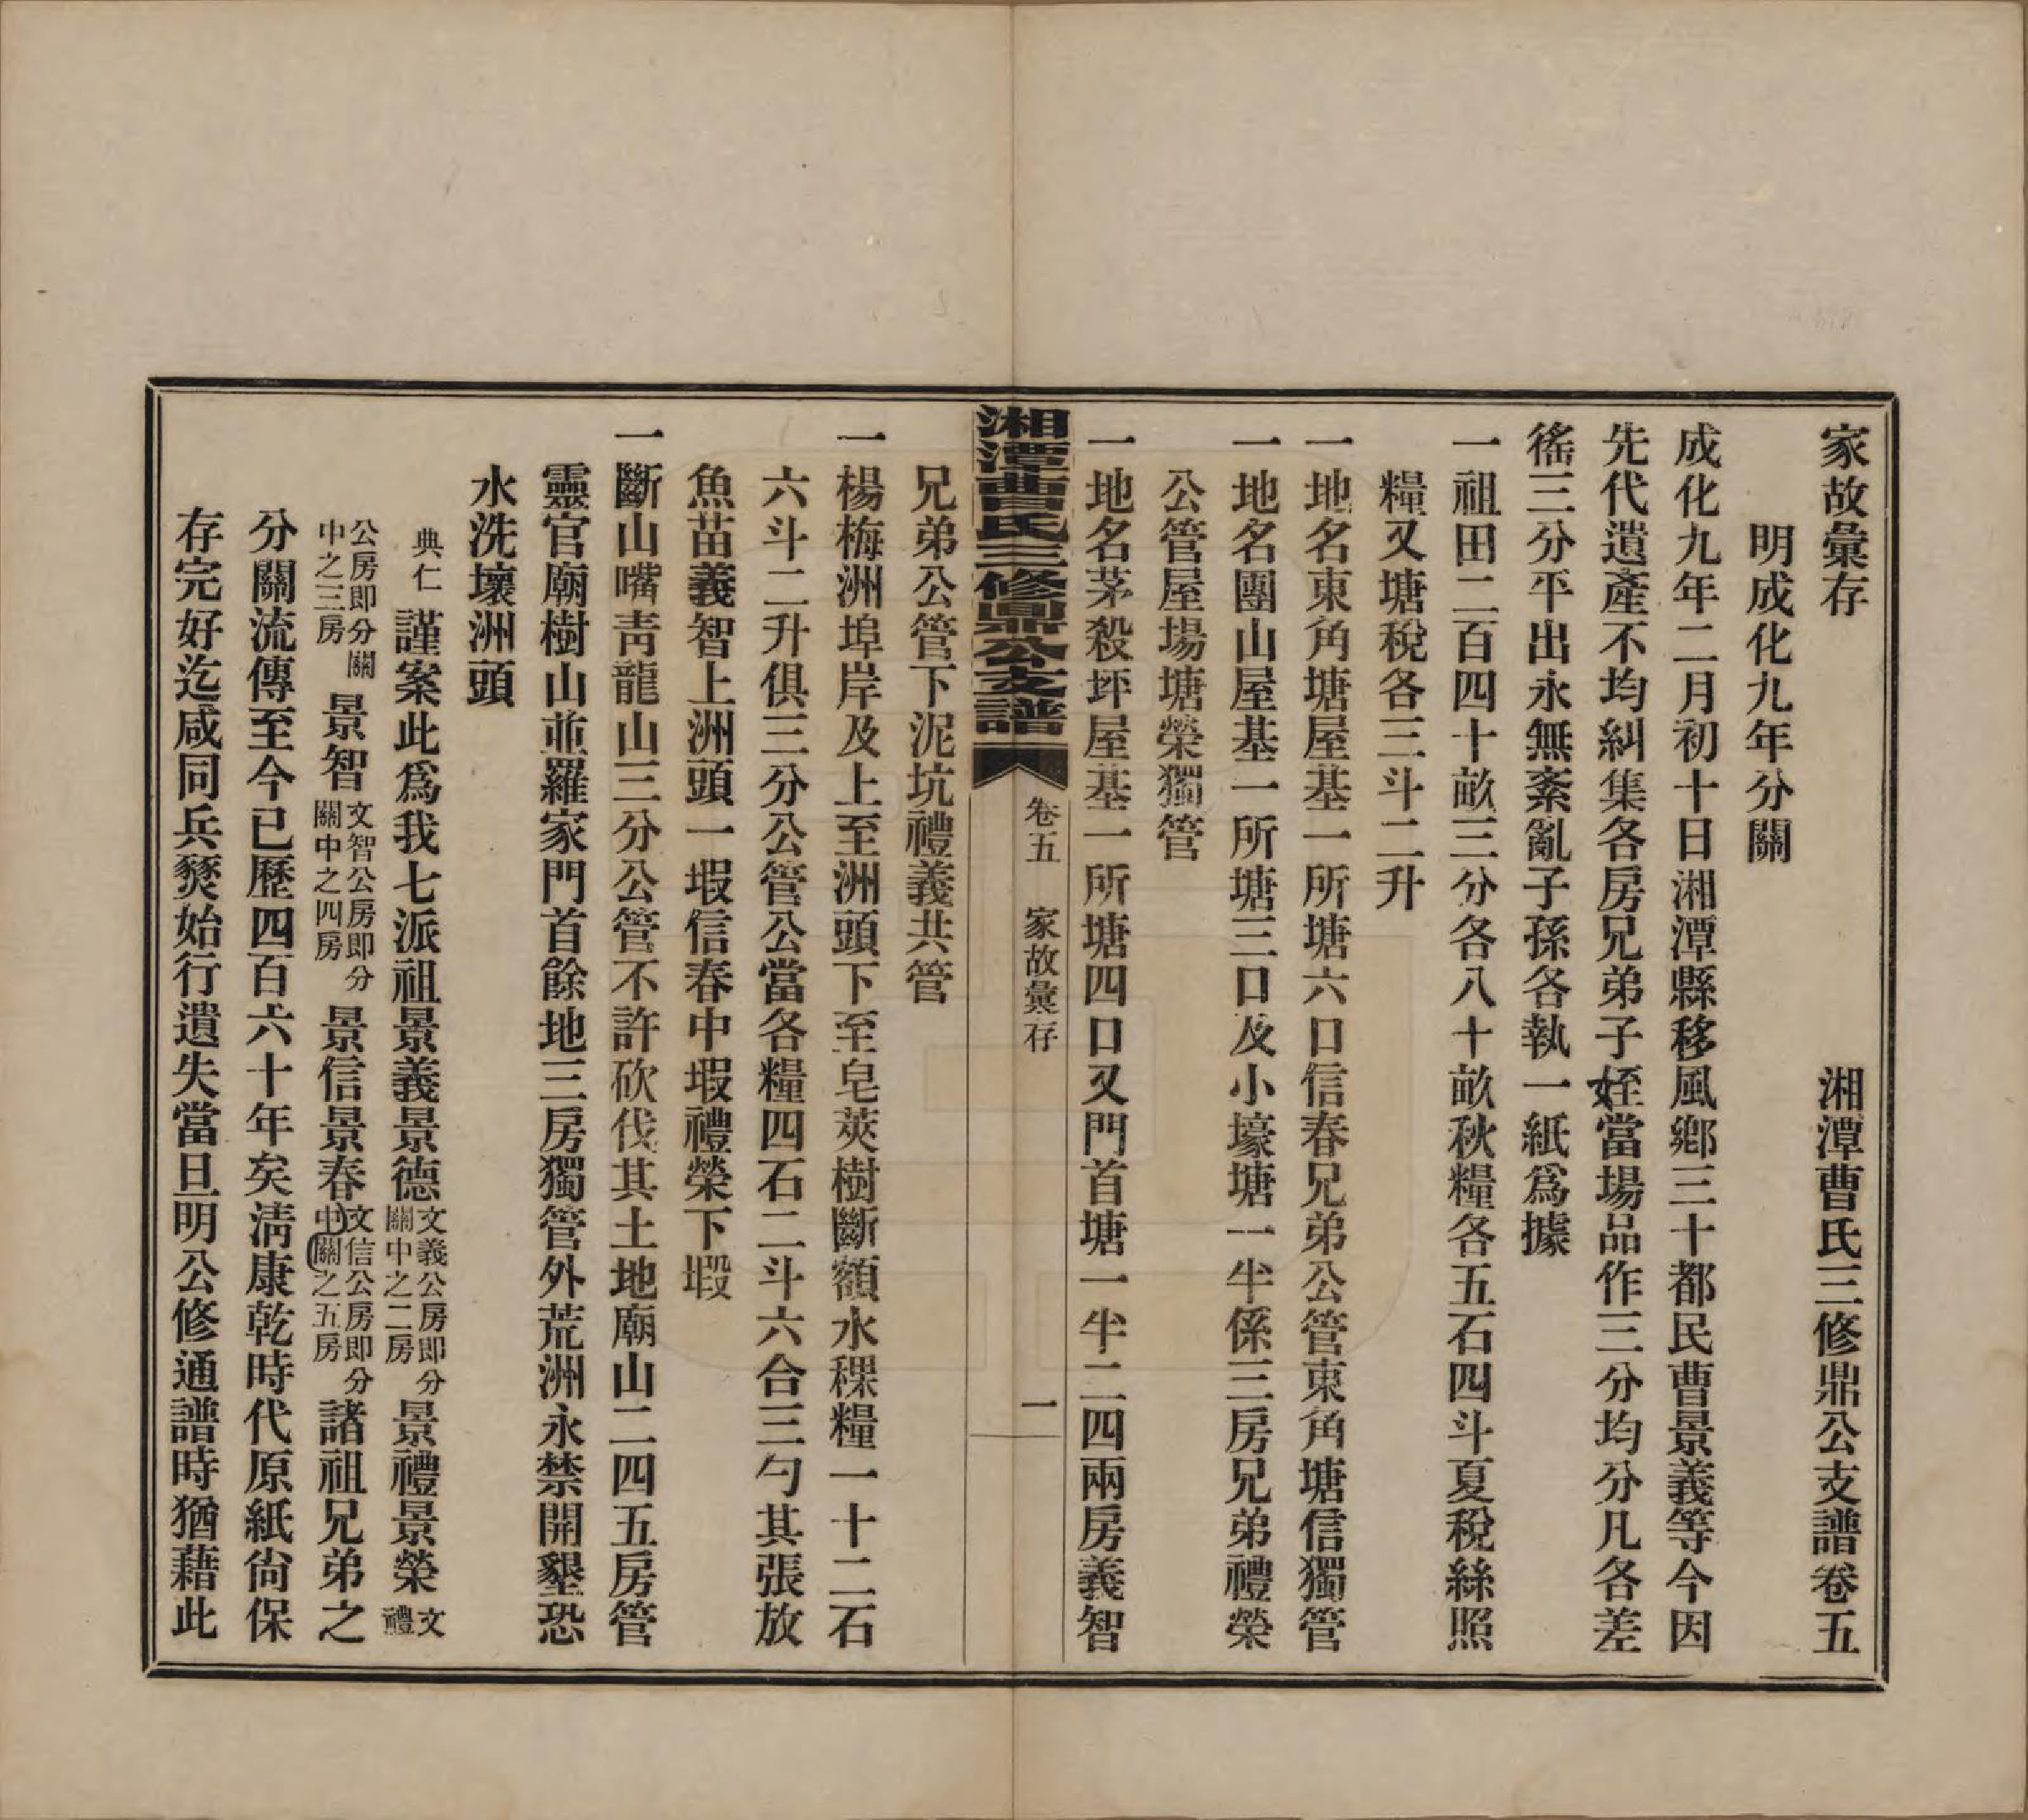 家故彙存　湘潭曹氏三修鼎公支譜卷五
明成化九年分關
成化九年二月初十日湘潭縣移風鄉三十都民曹景義等今因
先代遺產不均糾集各房兄弟子姪當場品作三分均分凡各差
徭三分平出永無紊亂子孫各執一紙爲據
一祖田二百四十畝三分各八十畝秋糧各五石四斗夏稅絲照
糧又塘稅各三斗二升
一地名東角塘屋基一所塘六口信春兄弟公管東角塘信獨管
一地名團山屋基一所塘三口及小壕塘一半係三房兄弟禮榮
公管屋場塘榮獨管
一地名茅殺坪屋基一所塘四口又門首塘一半二四兩房義智
湘潭曹氏三修鼎公支譜　卷五　家故彙存　一
兄弟公管下泥坑禮義共管
一楊梅洲埠岸及上至洲頭下至皂莢樹斷額水稞糧一十二石
六斗二升俱三分公管公當各糧四石二斗六合三勺其張放
魚苗義智上洲頭一塅信春中塅禮榮下塅
一斷山嘴靑龍山三分公管不許砍伐其土地廟山二四五房管
靈官廟樹山並羅家門首餘地三房獨管外荒洲永禁開墾恐
水洗壞洲頭
典仁謹案此爲我七派祖景義景德文義公房即分關中之二房景禮景榮文禮
公房即分關中之三房景智文智公房即分關中之四房景信景春文信公房即分關中之五房諸祖兄弟之
分關流傳至今已歷四百六十年矣淸康乾時代原紙尙保
存完好迄咸同兵燹始行遺失當旦明公修通譜時猶藉此